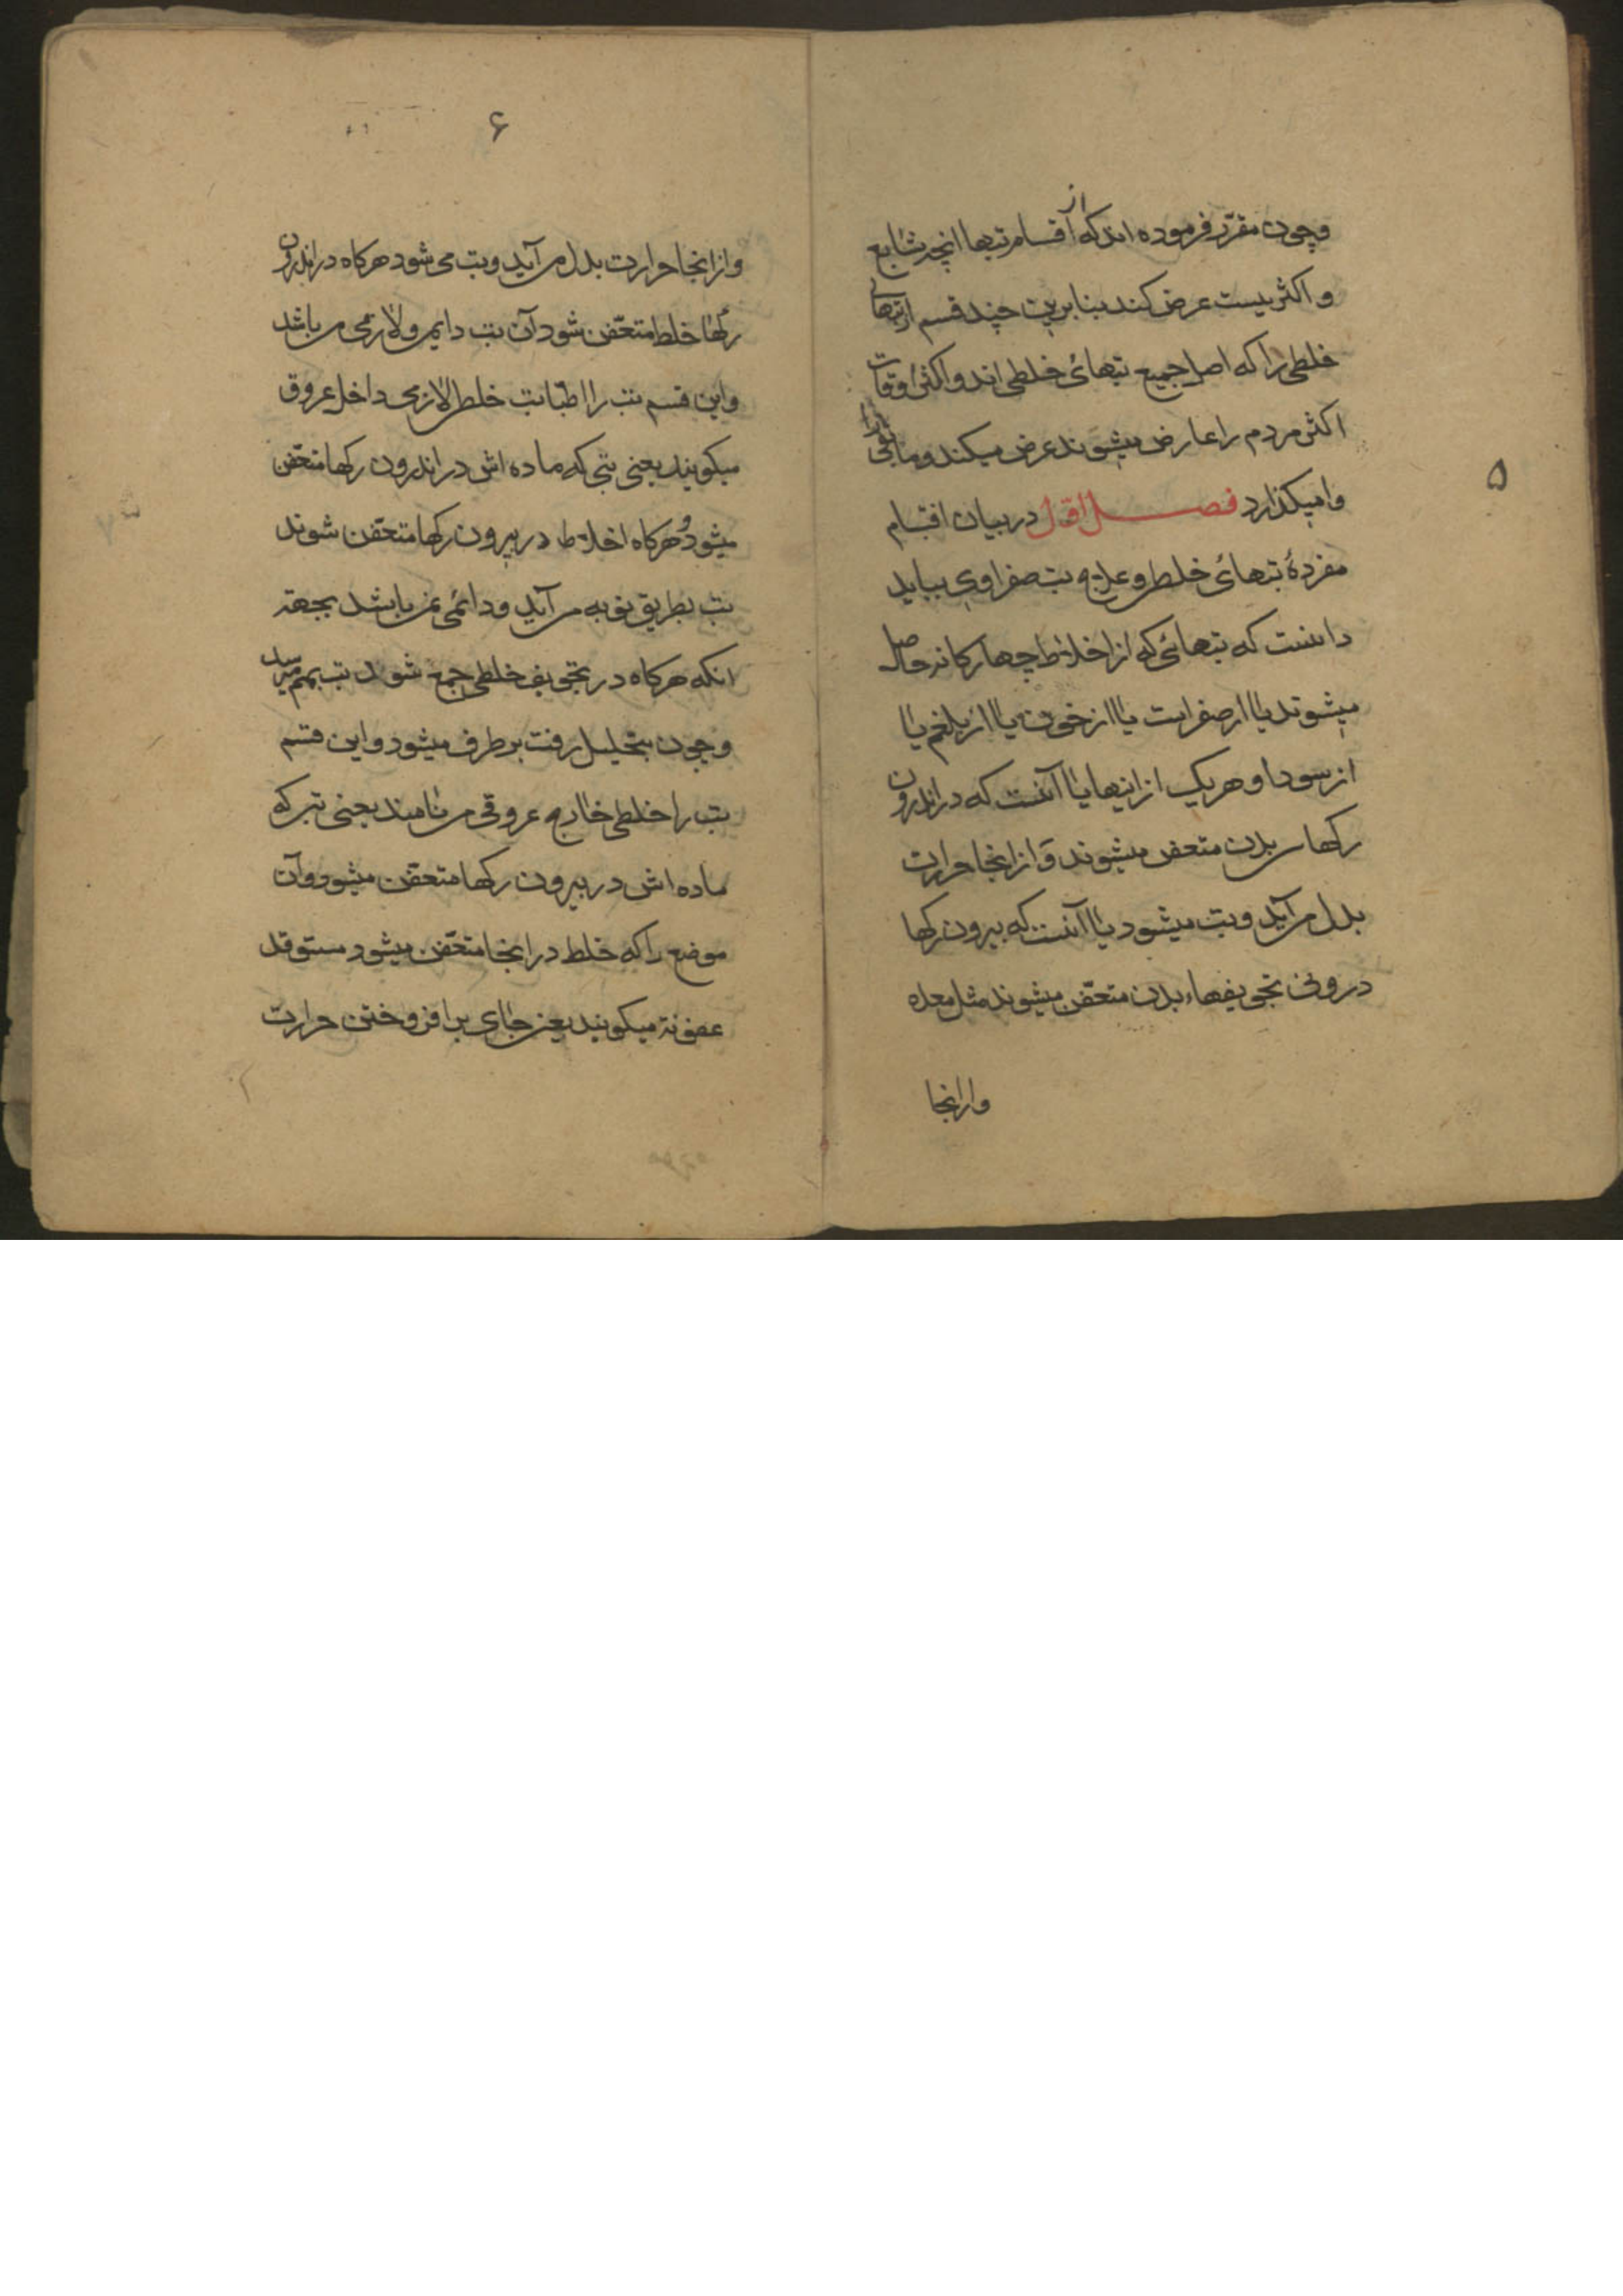 ۵
وچون مقرّر فرموده اند که از اقسام تبها انچه شایع
و اکثریست عرض کند بنابرین چند قسم از تبهای
خلطی را که اصل جمیع تبهائ خلطی اند و اکثر اوقات
اکثر مردم را عارض میشوند عرض میکند و مابقی را
وامیکذارد فصــل اوّل در بیان اقسام
مفردهٔ تبهائ خلطی و علاج تب صفراوی بباید
دانست که تبهائی که از اخلاط چهارکانه حاصل
میشوند یا از صفراست یا از خون یا از بلغم یا
از سودا و هریک از اینها یا آنست که در اندرون
رکهای بدن متعفن میشوند و از انجا حرارت
بدل می آید و تب میشود یا آنست که بیرون رکها
درونی تجویفهاء بدن متعفّن میشوند مثل معده
وازانجا
۶
وازانجا حرارت بدل می آید و تب می شود هرکاه در اندرون
رکها خلط متعفّن شود آن تب دایمی و لازمی می باشد
واین قسم تب را اطبّا تب خلطی لازمی داخل عروق
میکویند یعنی تبی که ماده اش در اندرون رکها متعفّن
میشود و هرکاه اخلاط در بیرون رکها متعفّن شوند
تب بطریق نوبه می آید و دائمی نمی باشد بجهة
انکه هرکاه در تجویف خلطی جمع شود تب بهم میرسد
و چون بتحلیل رفت برطرف میشود و این قسم
تب را خلطی خارج عروقی می نامند یعنی تبی که
ماده اش در بیرون رکها متعفّن میشود و آن
موضع را که خلط در انجا متعفّن میشود مستوقد
عفونة میکویند یعنی جای برافروختن حرارت